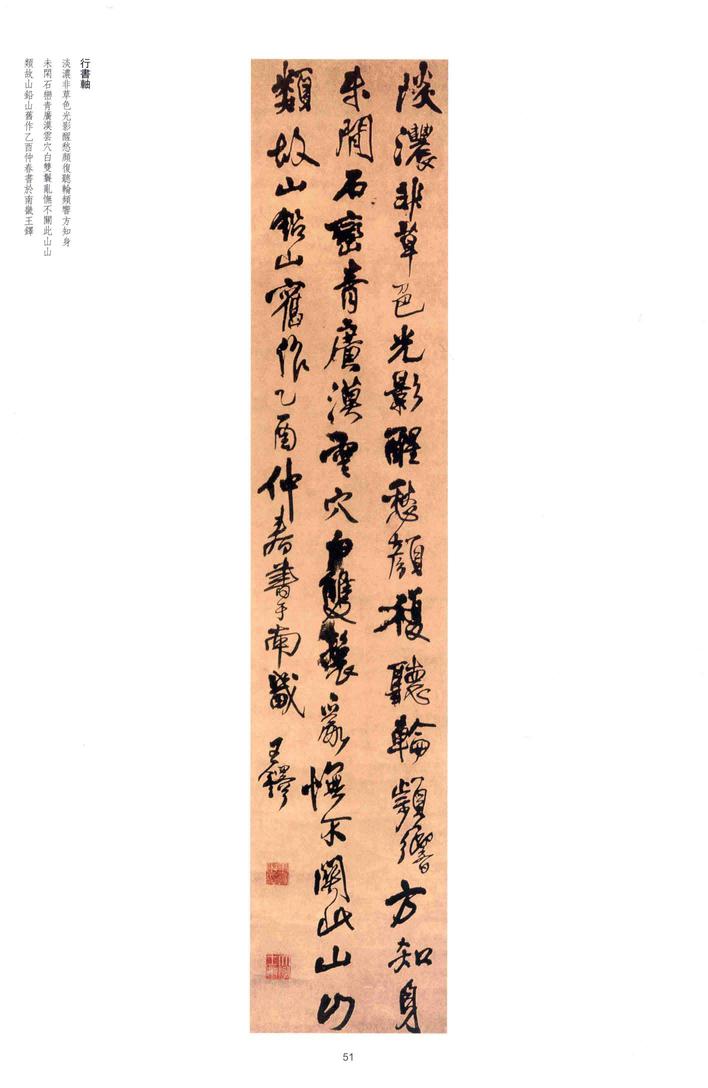 行書軸
淡濃非草色光影醒愁顏復聽輪頻響方知身
未閑石巒青廣漠雲穴白雙鬢亂憮不關此山山
類故山鉛山舊作乙酉仲春書於南畿王鐸
淡濃非草色光影醒愁顏複聽輪頻響方知身
未閒石巒青廣漠雲穴白雙鬢亂憮不關此山山
類故山鉛山舊作乙酉仲春書于南畿 王鐸
51